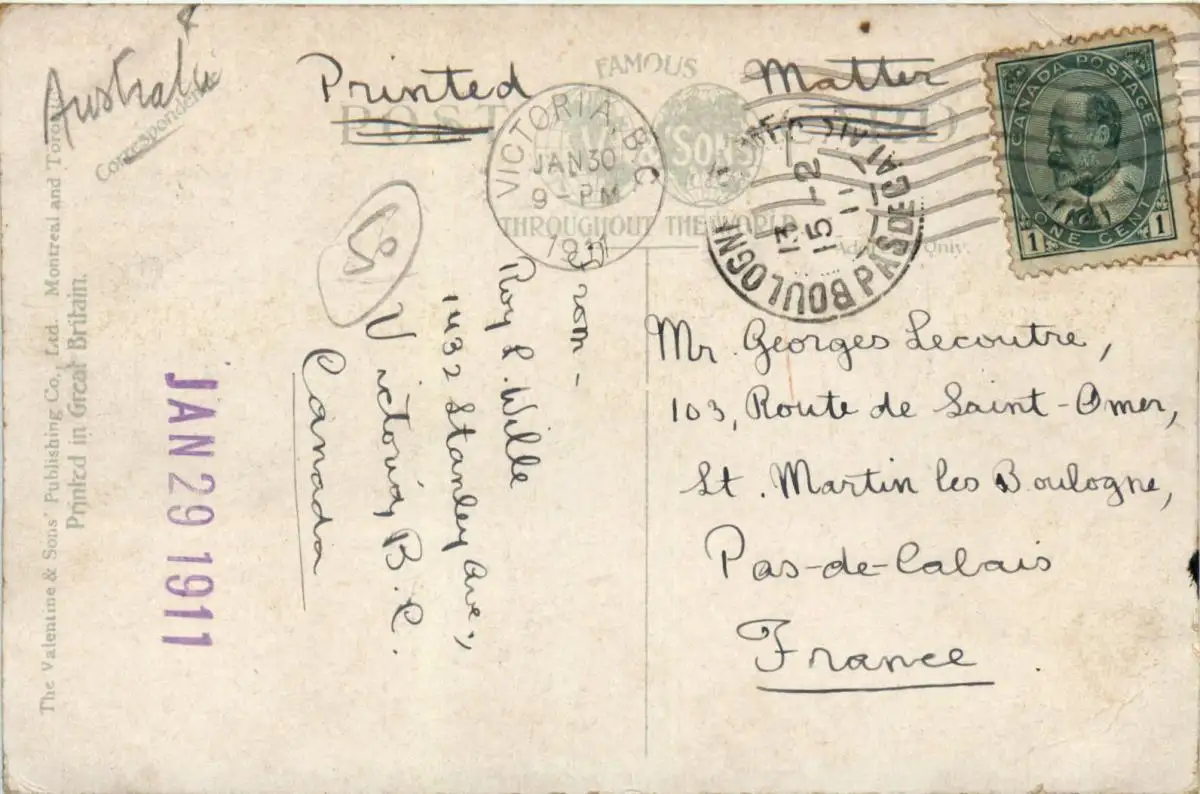 Australia
Correspondence
Printed Matter
FAMOUS
POST CARD
V. & SONS
THROUGHOUT THE WORLD
Address Only.
VICTORIA, B.C.
JAN 30
9 - PM
1911
BOULOGNE
PAS DE CALAIS
13 - 2
15
11
CANADA POSTAGE
1 ONE CENT 1
Mr. Georges Lecoutre,
103, Route de Saint-Omer,
St. Martin les Boulogne,
Pas-de-Calais
France
From -
Roy L. Wille
1432 Stanley Ave.,
Victoria, B.C.
Canada
JAN 29 1911
The Valentine & Sons' Publishing Co., Ltd. Montreal and Toronto
Printed in Great Britain.